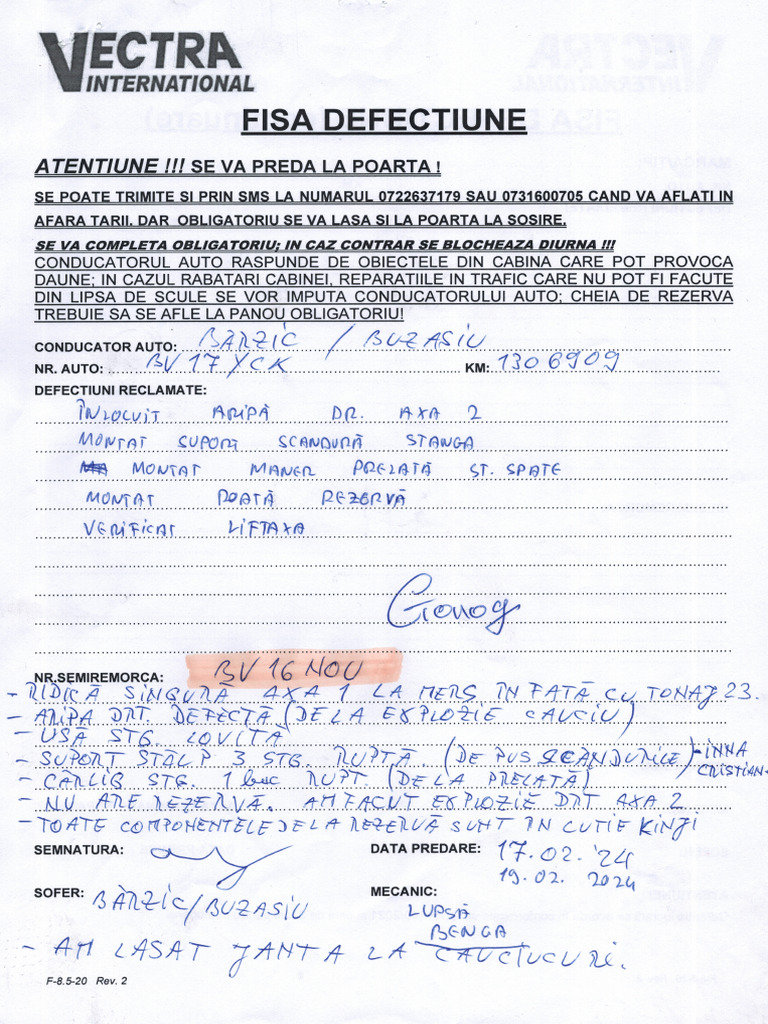 VECTRA
INTERNATIONAL
FISA DEFECTIUNE
ATENTIUNE !!! SE VA PREDA LA POARTA !
SE POATE TRIMITE SI PRIN SMS LA NUMARUL 0722637179 SAU 0731600705 CAND VA AFLATI IN
AFARA TARII. DAR OBLIGATORIU SE VA LASA SI LA POARTA LA SOSIRE.
SE VA COMPLETA OBLIGATORIU; IN CAZ CONTRAR SE BLOCHEAZA DIURNA !!!
CONDUCATORUL AUTO RASPUNDE DE OBIECTELE DIN CABINA CARE POT PROVOCA
DAUNE; IN CAZUL RABATARI CABINEI, REPARATIILE IN TRAFIC CARE NU POT FI FACUTE
DIN LIPSA DE SCULE SE VOR IMPUTA CONDUCATORULUI AUTO; CHEIA DE REZERVA
TREBUIE SA SE AFLE LA PANOU OBLIGATORIU!
CONDUCATOR AUTO: BÂRZIC / BUZASIU
NR. AUTO: BV 17 YCK KM: 1306909
DEFECTIUNI RECLAMATE:
ÎNLOCUIT ARIPĂ DR. AXA 2
MONTAT SUPORT SCANDURĂ STANGA
MONTAT MANER PRELATĂ ST. SPATE
MONTAT ROATĂ REZERVĂ
VERIFICAT LIFTAXA
NR.SEMIREMORCA: BV 16 NOU
- RIDICĂ SINGURĂ AXA 1 LA MERS ÎN FATĂ CU TONAJ 23.
- ARIPA DRT. DEFECTĂ (DE LA EXPLOZIE CAUCIU)
- USĂ STG. LOVITĂ
- SUPORT STÂLP 3 STG. RUPTĂ. (DE PUS SCÂNDURILE) - INNA CRISTIAN
- CÂRLIG STG. 1 buc RUPT. (DE LA PRELATĂ)
- NU ARE REZERVĂ. AM FĂCUT EXPLOZIE DRT AXA 2
- TOATE COMPONENTELE DE LA REZERVĂ SUNT ÎN CUTIE KINZI
SEMNATURA: DATA PREDARE: 17.02.'24
19.02. 2024
SOFER: BÂRZIC/BUZASIU MECANIC: LUPSA
BENGA
- AM LASAT JANTA LA CAUCIUCURI.
F-8.5-20 Rev. 2